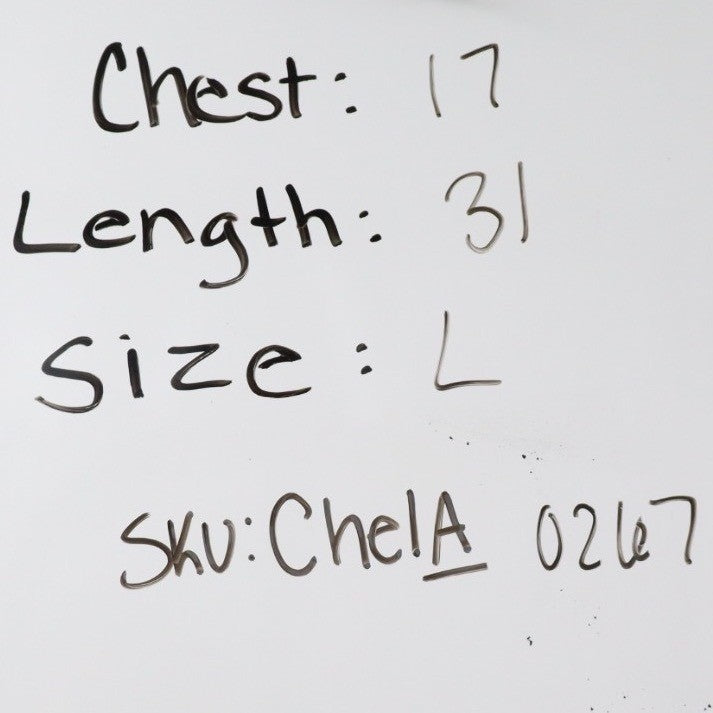 Chest: 17
Length: 31
Size: L
SKU: ChelA 0267